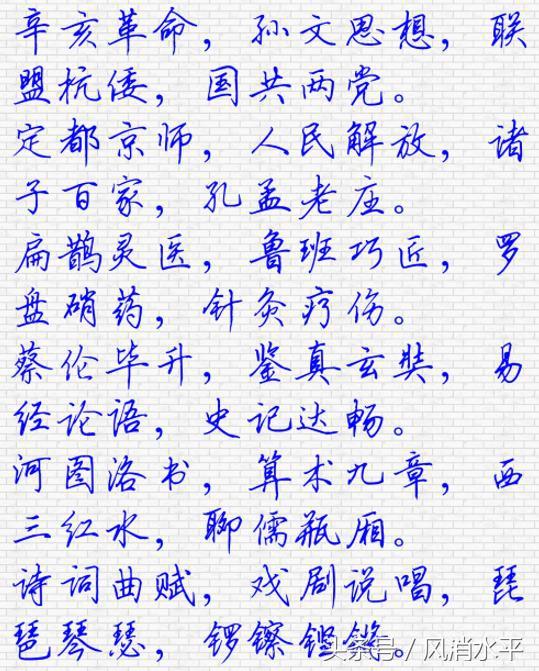 辛亥革命，孙文思想，联
盟抗倭，国共两党。
定都京师，人民解放，诸
子百家，孔孟老庄。
扁鹊灵医，鲁班巧匠，罗
盘硝药，针灸疗伤。
蔡伦毕升，鉴真玄奘，易
经论语，史记达畅。
河图洛书，算术九章，西
三红水，聊儒瓶厢。
诗词曲赋，戏剧说唱，琵
琶琴瑟，锣镲铿锵。
头条号／风消水平